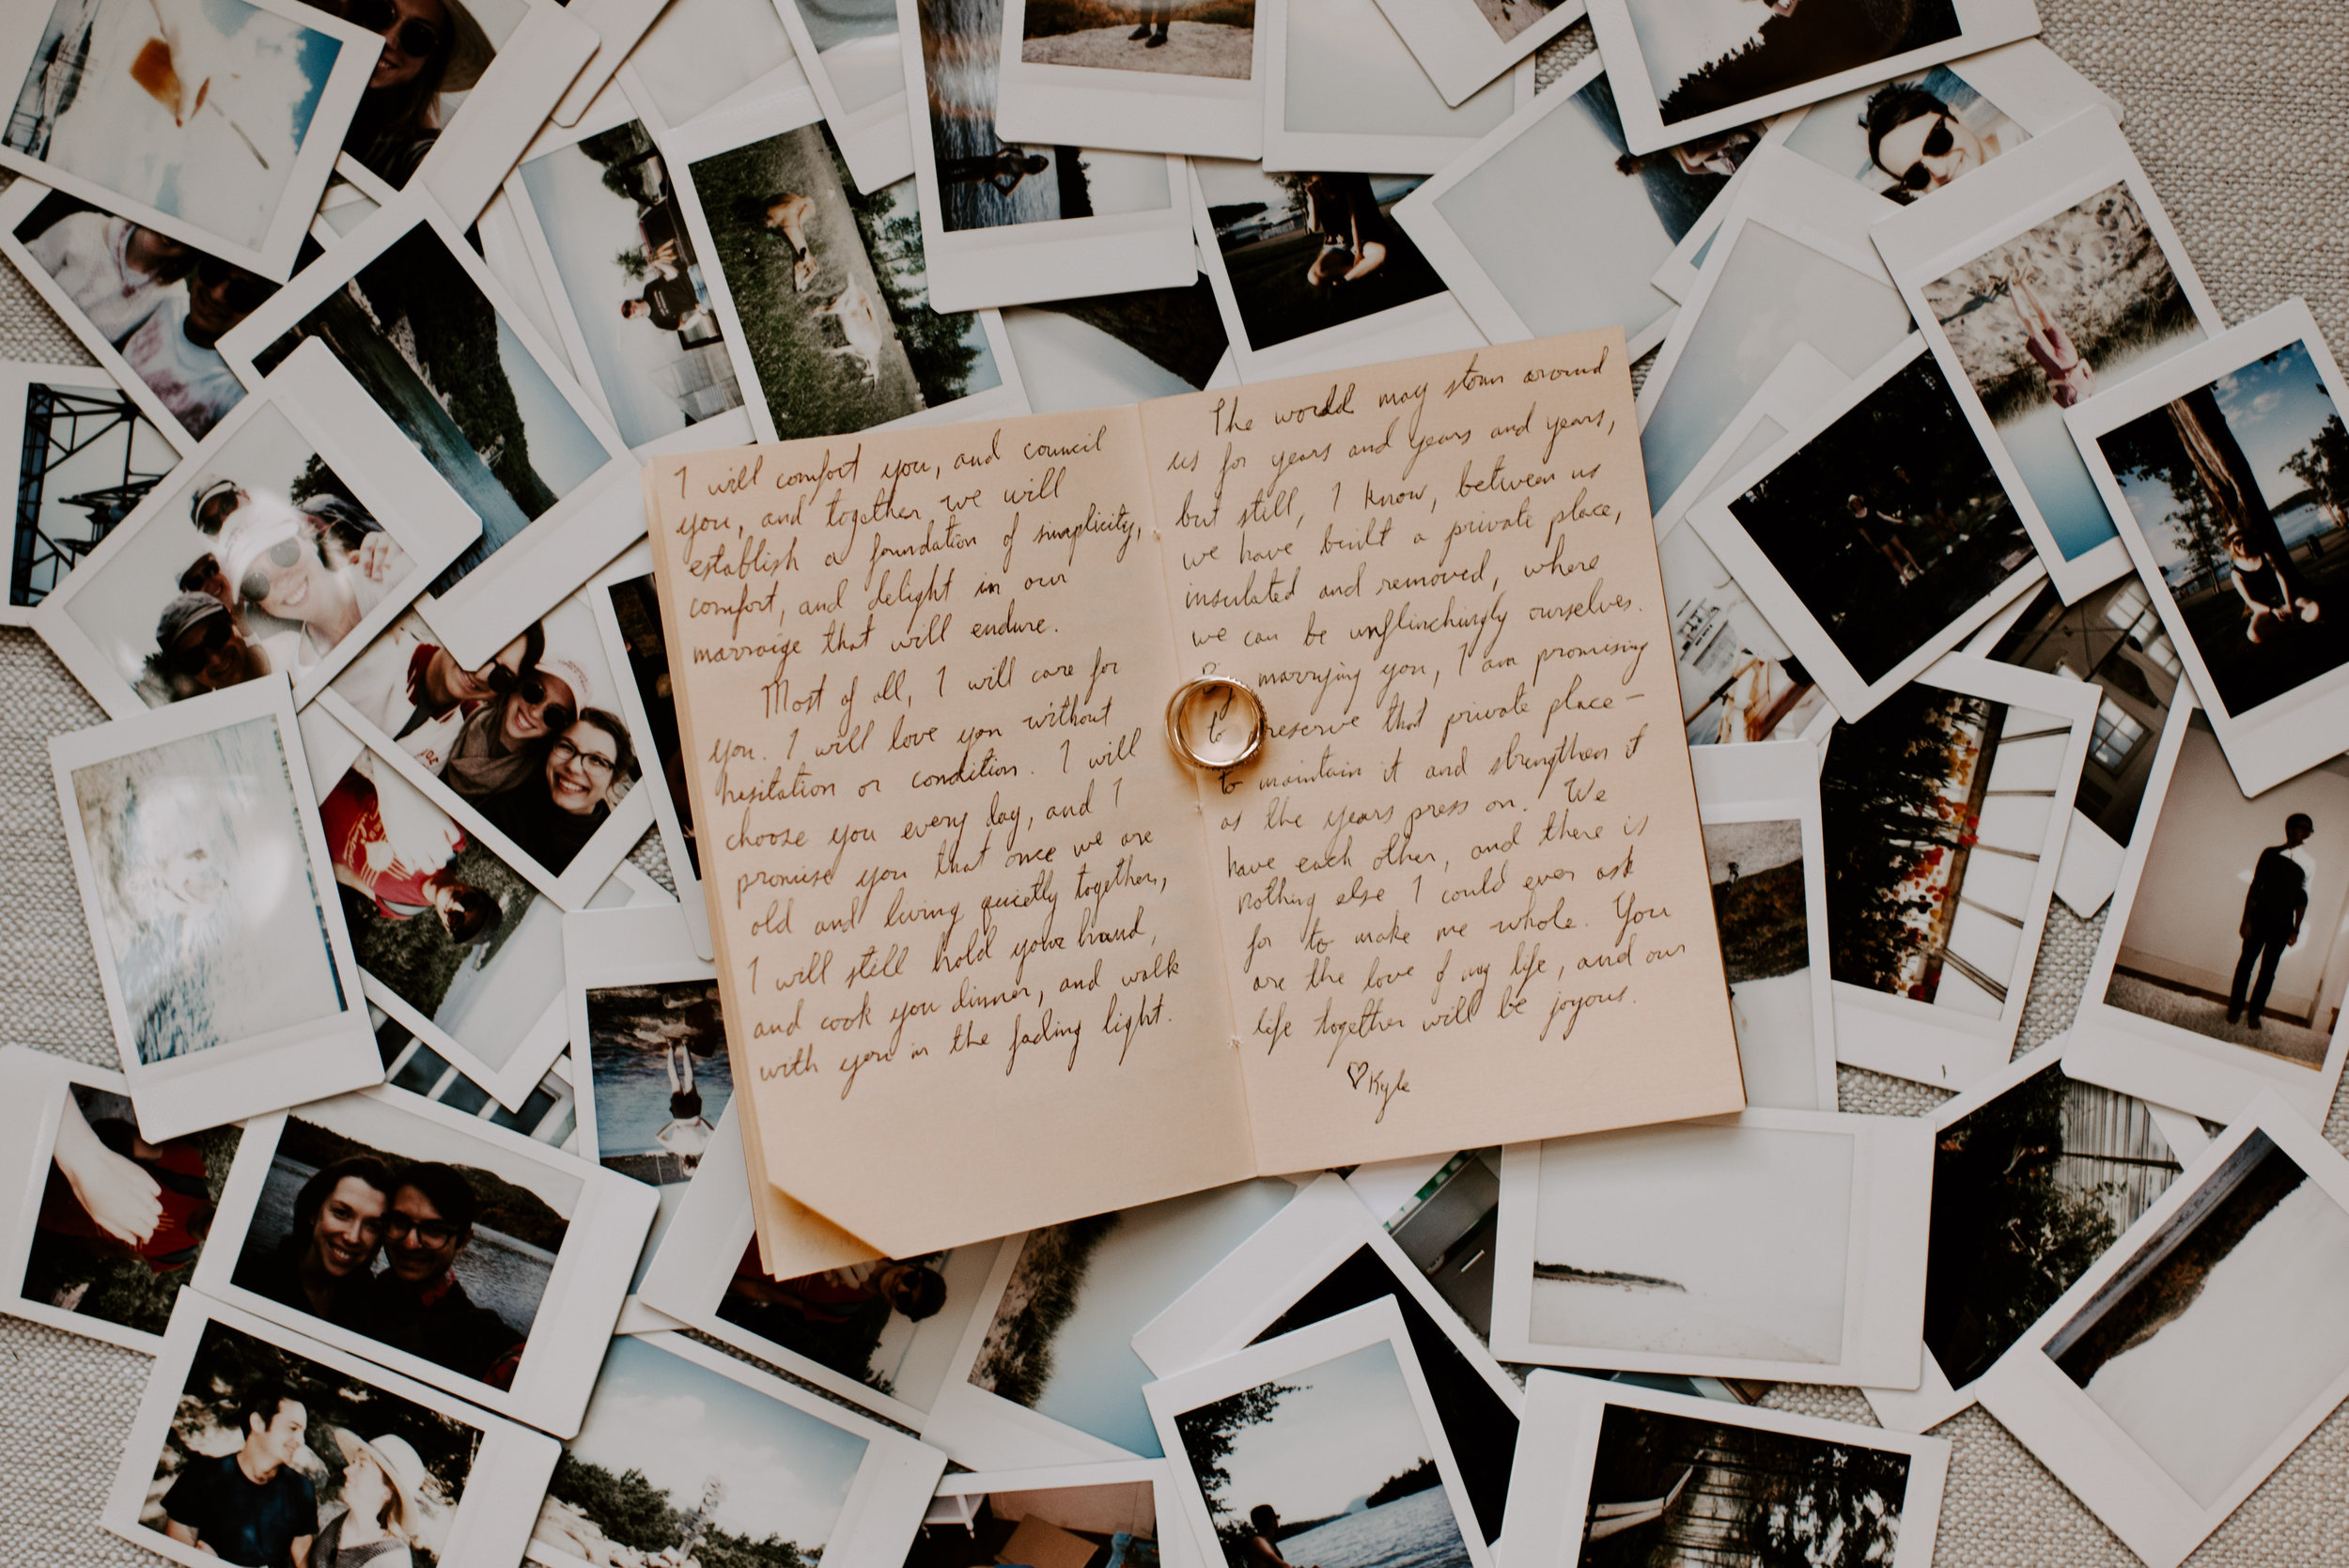 I will comfort you, and council
you, and together we will
establish a foundation of simplicity,
comfort, and delight in our
marraige that will endure.
Most of all, I will care for
you. I will love you without
hesitation or condition. I will
choose you every day, and I
promise you that once we are
old and living quietly together,
I will still hold your hand,
and cook you dinner, and walk
with you in the fading light.
The world may storm around
us for years and years and years,
but still, I know, between us
we have built a private place,
insulated and removed, where
we can be unflinchingly ourselves.
By marrying you, I am promising
to preserve that private place –
to maintain it and strengthen it
as the years press on. We
have each other, and there is
nothing else I could ever ask
for to make me whole. You
are the love of my life, and our
life together will be joyous.
♡Kyle